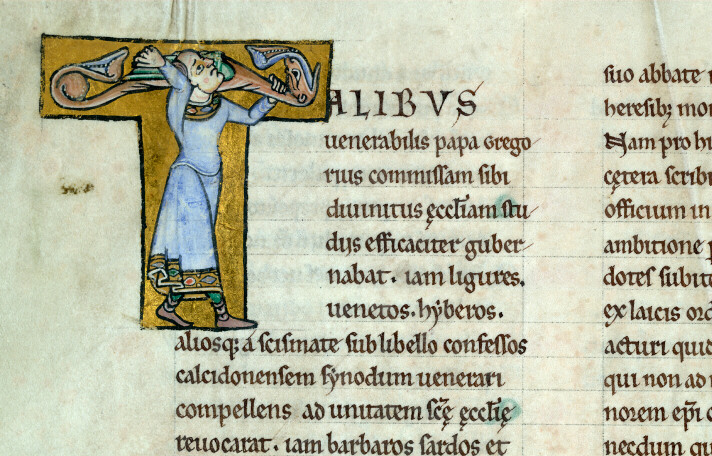 TALIBVS
uenerabilis papa Grego
rius commissam sibi
diuinitus ęccl̄iam stu
dijs efficaciter guber
nabat. iam ligures.
uenetos. hyberos.
aliosq; a scismate sub libello confessos
calcidonensem synodum uenerari
compellens ad unitatem scę̄ ęccl̄ię
reuocarat. iam barbaros sardos et
suo abbate
heresib; mon
Nam pro hu
cętera scrib
officium in
ambitione p
dotes subito
ex laicis ord
acturi quid
qui non ad
norem ep̄i c
necdum qu